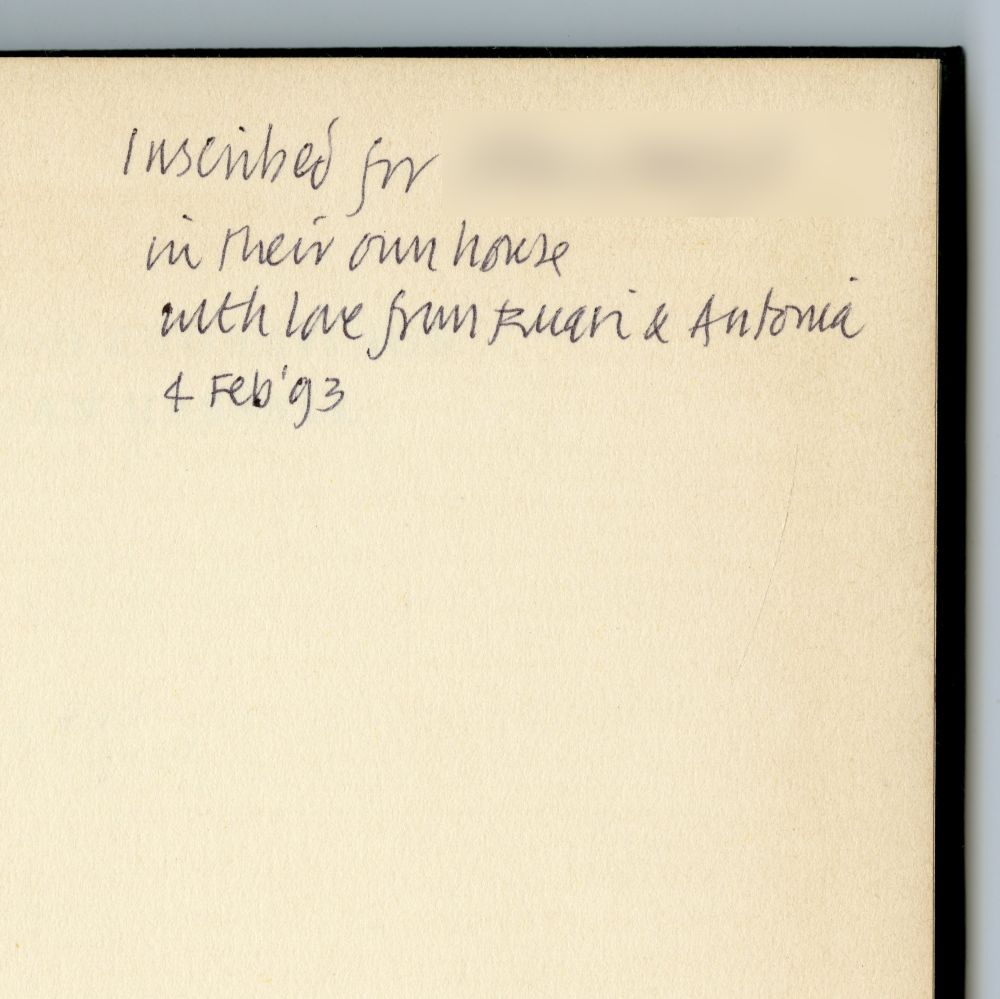 Inscribed for
in their own house
with love from Ruari & Antonia
4 Feb '93